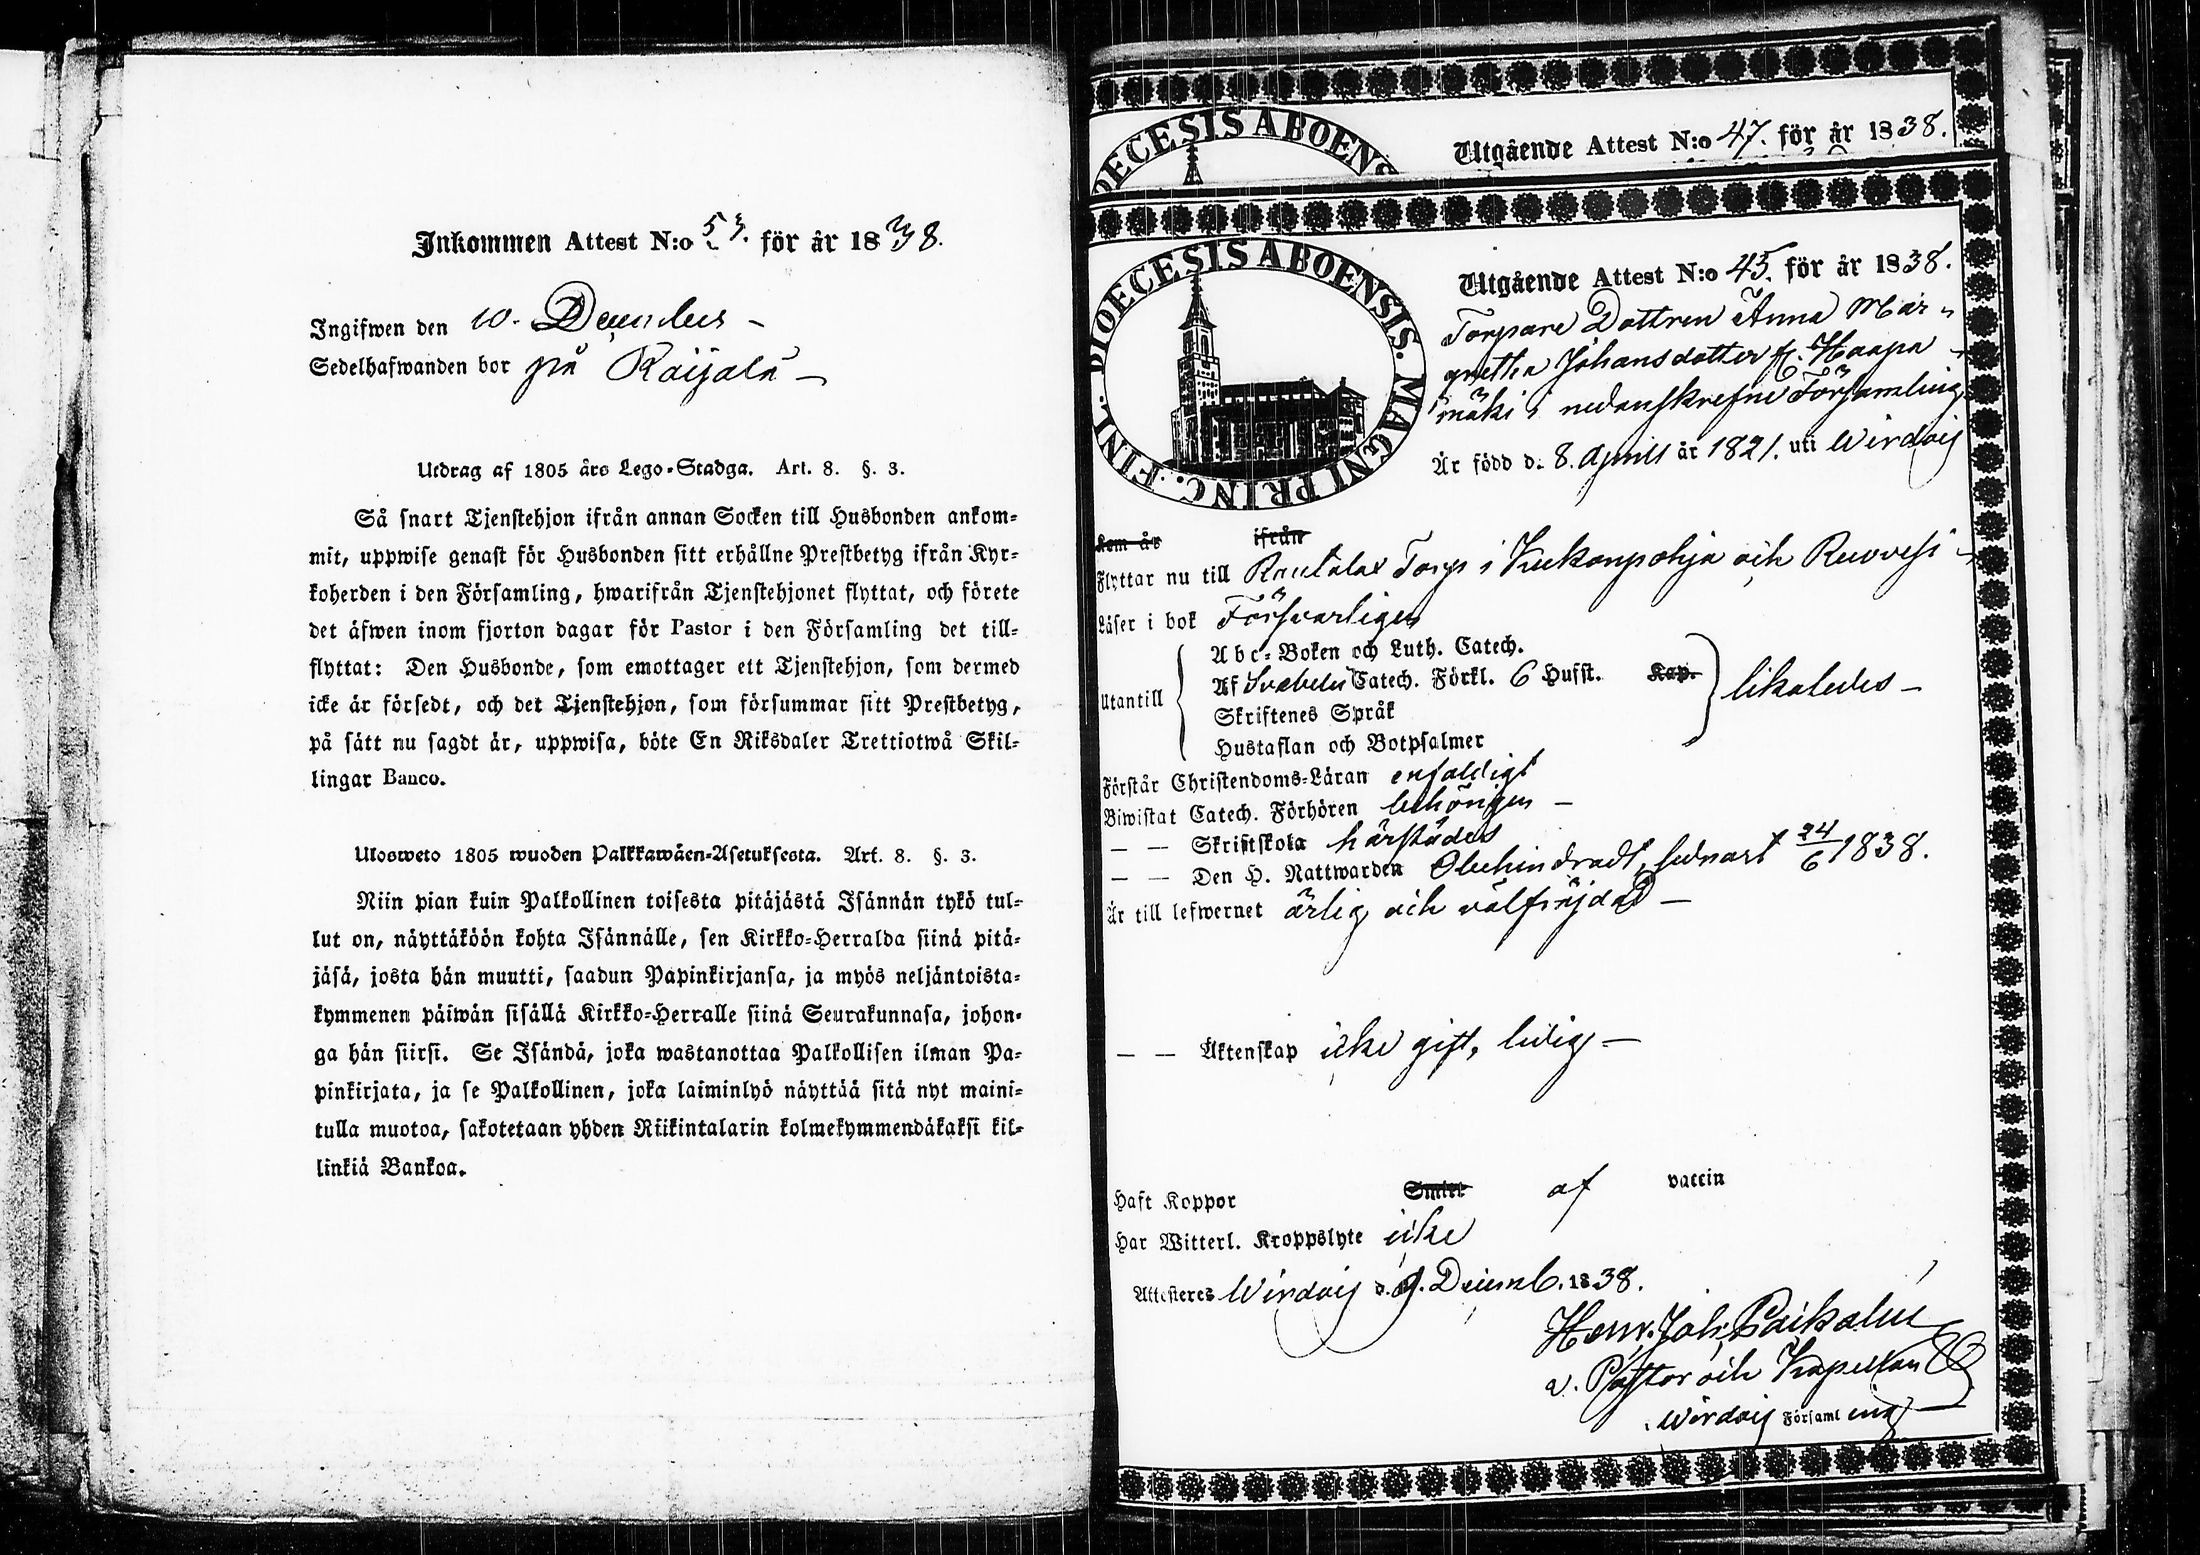 Inkommen Attest N:o 53. för år 1838.
Ingifwen den 10. December –
Sedelhafwanden bor på Raijala –
Utdrag af 1805 års Lego-Stadga. Art. 8. §. 3.
Så snart Tjenstehjon ifrån annan Socken till Husbonden ankom-
mit, uppwise genast för Husbonden sitt erhållne Prestbetyg ifrån Kyr-
koherden i den Församling, hwarifrån Tjenstehjonet flyttat, och förete
det äfwen inom fjorton dagar för Pastor i den Församling det till-
flyttat: Den Husbonde, som emottager ett Tjenstehjon, som dermed
icke är försedt, och det Tjenstehjon, som försummar sitt Prestbetyg,
på sätt nu sagdt är, uppwisa, böte En Riksdaler Trettiotwå Skil-
lingar Banco.
Ulosweto 1805 wuoden Palkkawäen-Asetuksesta. Art. 8. §. 3.
Niin pian kuin Palkollinen toisesta pitäjästä Isännän tykö tul-
lut on, näyttäköön kohta Isännälle, sen Kirkko-Herralda siinä pitä-
jäsä, josta hän muutti, saadun Papinkirjansa, ja myös neljäntoista-
kymmenen päiwän sisällä Kirkko-Herralle siinä Seurakunnasa, johon-
ga hän siirsi. Se Isändä, joka wastanottaa Palkollisen ilman Pa-
pinkirjata, ja se Palkollinen, joka laiminlyö näyttää sitä nyt maini-
tulla muotoa, sakotetaan yhden Riikintalarin kolmekymmendäkaksi kil-
linkiä Bankoa.
DIOECESIS ABOENSIS
Utgående Attest N:o 47. för år 1838.
DIOECESIS ABOENSIS. MAGNI PRINC. FINL.
Utgående Attest N:o 45. för år 1838.
Torpare Dottren Anna Mar-
gretha Johansdotter fr. Haapa-
mäki i nedanskrefne Församling
Är född d. 8. Aprill år 1821. uti Wirdois
Kom år ifrån
Flyttar nu till Rautalax Torp i Kukonpohja och Ruovesi –
Läser i bok Försvarligen
Utantill
Abc-Boken och Luth. Catech.
Af Svebelii Catech. Förkl. 6 Hufst. Kap.
Skriftenes Språk
Hustaflan och Botpsalmer
likaledes –
Förstår Christendoms-Läran enfaldigt
Biwistat Catech. Förhören behörigen –
— — Skriftskola härstädes
— — Den H. Nattwarden Obehindradt, sednast 24/6 1838.
Är till lefwernet ärlig och välfrejdad –
— — Äktenskap icke gift, ledig –
Haft Koppor Smitt af vaccin
Har Witterl. Kroppslyte icke
Attesteres Wirdois d. 9. Decemb. 1838.
Henr. Joh.
v. Pastor och Kapellan
i Wirdois Församling